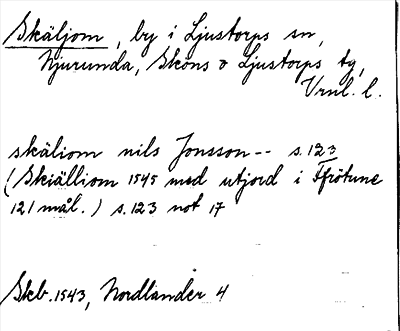 Skäljom, by i Ljustorps sn,
Njurunda, Sköns o Ljustorps tg,
Vrnl. l.
skäliom nils Jonsson-- s. 123
(Skiälliom 1545 med utjord i Ffrötune
121 mål.) s. 123 not 17
Skb. 1543, Nordlander 4